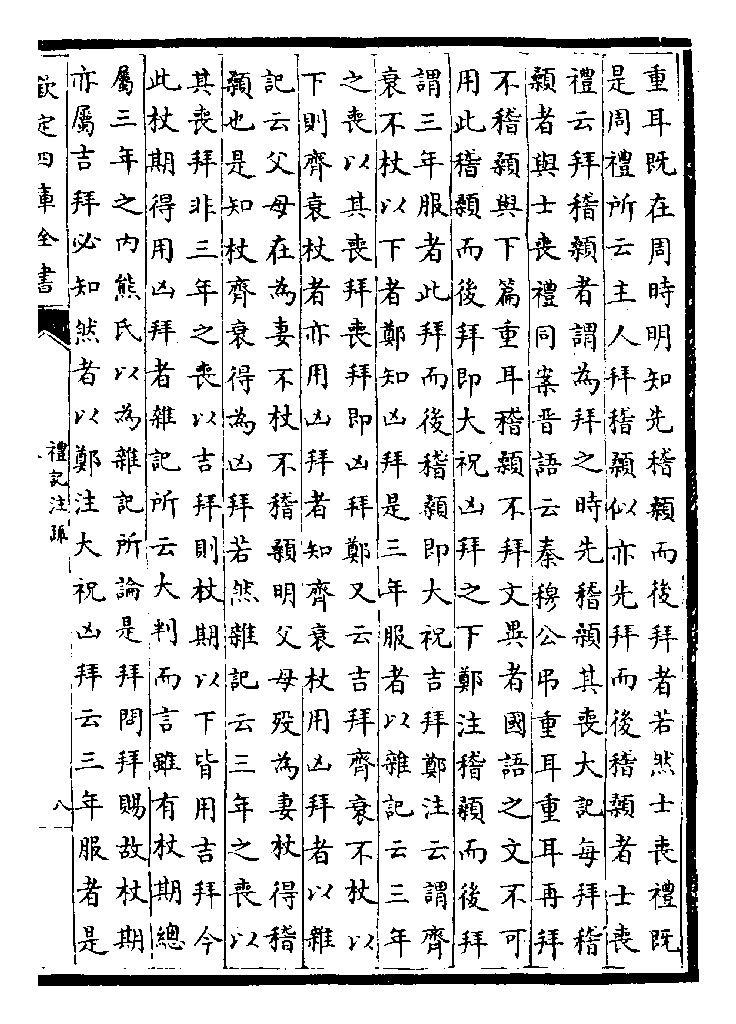 重耳既在周時明知先稽顙而後拜者若然士喪禮既
是周禮所云主人拜稽顙似亦先拜而後稽顙者士喪
禮云拜稽顙者謂為拜之時先稽顙其喪大記每拜稽
顙者與士喪禮同案晋語云秦穆公弔重耳重耳再拜
不稽顙與下篇重耳稽顙不拜文異者國語之文不可
用此稽顙而後拜即大祝凶拜之下鄭注稽顙而後拜
謂三年服者此拜而後稽顙即大祝吉拜鄭注云謂齊
衰不杖以下者鄭知凶拜是三年服者以雜記云三年
之喪以其喪拜喪拜即凶拜鄭又云吉拜齊衰不杖以
下則齊衰杖者亦用凶拜者知齊衰杖用凶拜者以雜
記云父母在為妻不杖不稽顙明父母歿為妻杖得稽
顙也是知杖齊衰得為凶拜若然雜記云三年之喪以
其喪拜非三年之喪以吉拜則杖期以下皆用吉拜今
此杖期得用凶拜者雜記所云大判而言雖有杖期總
屬三年之內熊氏以為雜記所論是拜問拜賜故杖期
亦屬吉拜必知然者以鄭注大祝凶拜云三年服者是
欽定四庫全書
禮記注疏
八